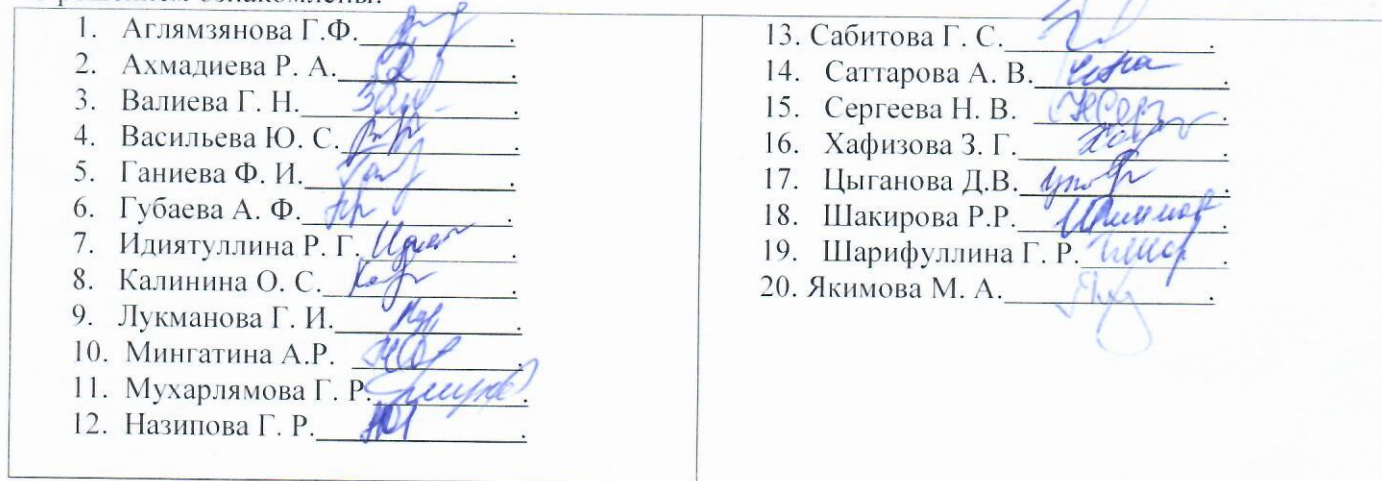 решением ознакомлены:
1. Аглямзянова Г.Ф.
2. Ахмадиева Р. А.
3. Валиева Г. Н.
4. Васильева Ю. С.
5. Ганиева Ф. И.
6. Губаева А. Ф.
7. Идиятуллина Р. Г.
8. Калинина О. С.
9. Лукманова Г. И.
10. Мингатина А.Р.
11. Мухарлямова Г. Р.
12. Назипова Г. Р.
13. Сабитова Г. С.
14. Саттарова А. В.
15. Сергеева Н. В.
16. Хафизова З. Г.
17. Цыганова Д.В.
18. Шакирова Р.Р.
19. Шарифуллина Г. Р.
20. Якимова М. А.